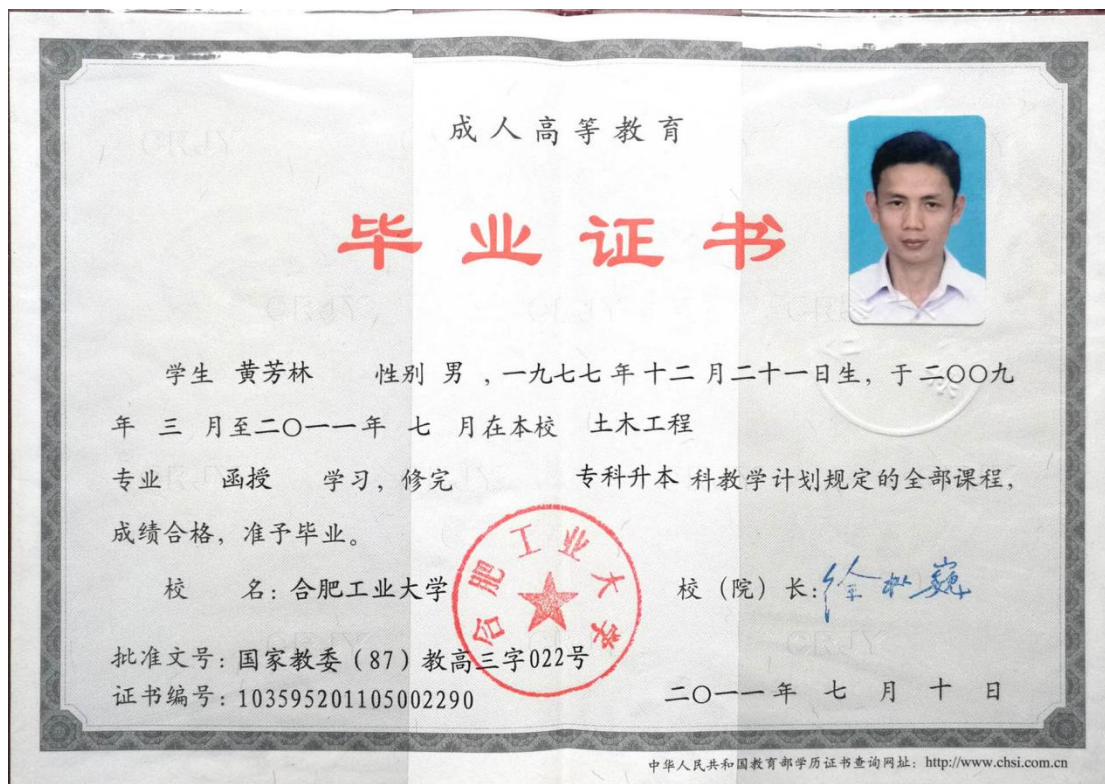 成人高等教育
毕业证书
学生 黄芳林 性别 男 ，一九七七年十二月二十一日生，于二〇〇九
年 三 月至二〇一一年 七 月在本校 土木工程
专业 函授 学习，修完 专科升本 科教学计划规定的全部课程，
成绩合格，准予毕业。
校 名：合肥工业大学
校（院）长：徐枞巍
合肥工业大学
批准文号：国家教委（87）教高三字022号
证书编号：103595201105002290
二〇一一年 七 月 十 日
中华人民共和国教育部学历证书查询网址：http://www.chsi.com.cn